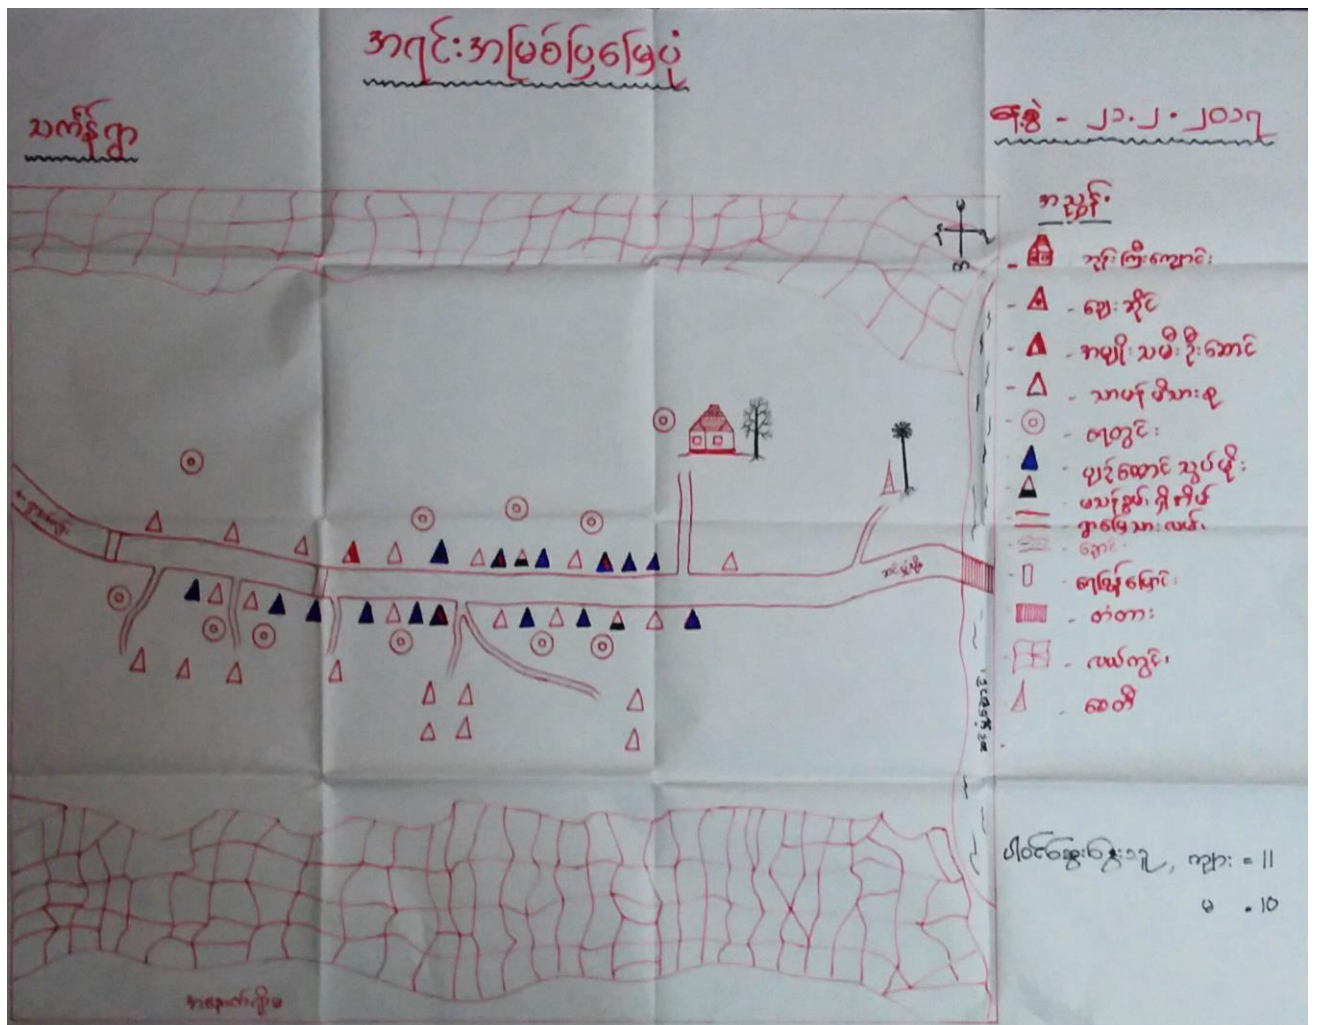 အရင်းအမြစ်ပြမြေပုံ
နေ့စွဲ - ၂၁.၂.၂၀၁၇
အညွှန်း
ဘုန်းကြီးကျောင်း
ဈေးဆိုင်
အမျိုးသမီးဦးဆောင်
သာမန်မိသားစု
ရေတွင်း
မသန်စွမ်းရှိအိမ်
ရွာမြေသားလမ်း
ချောင်း
တံတား
လယ်ကွင်း
စေတီ
ပါဝင်ဆွေးနွေးသူ, ကျား = 11
မ = 10